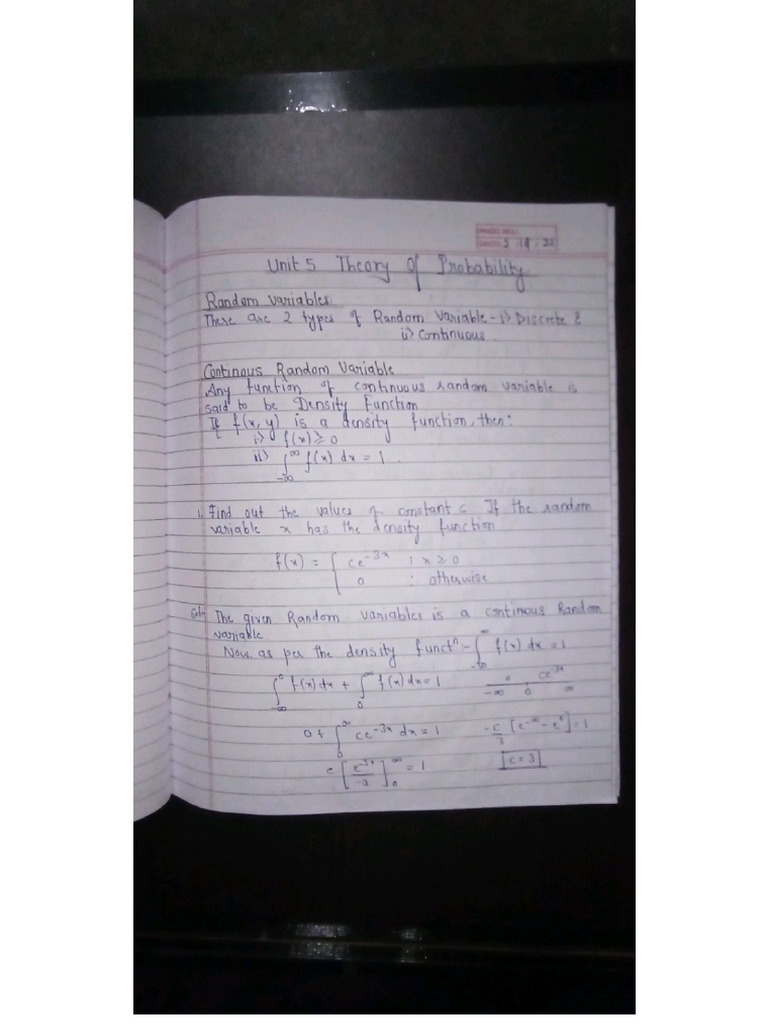 Unit 5 Theory of Probability
Random Variables
There are 2 types of Random Variable - i> Discrete &
ii> Continuous
Continous Random Variable
Any function of continuous random variable is
said to be Density Function
If f(x, y) is a density function, then:
i> f(x) ≥ 0
ii> ∫_{-∞}^{∞} f(x) dx = 1.
1. Find out the values of constant c If the random
variable x has the density function
f(x) = { ce^{-3x} ; x ≥ 0
0 : otherwise
Sol- The given Random variables is a continous Random
variable
Now as per the density funct^n :- ∫_{-∞}^{∞} f(x) dx = 1
∫_{-∞}^{0} f(x) dx + ∫_{0}^{∞} f(x) dx = 1
0 ce^{-3x}
-∞ 0 ∞
0 + ∫_{0}^{∞} ce^{-3x} dx = 1
c [e^{-3x}/-3]_{0}^{∞} = 1
-c/3 [e^{-∞} - e^{0}] = 1
c = 3